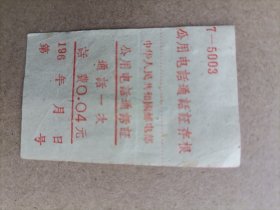 7—5003
公用电話通話証存根
中华人民共和国邮电部
公用电話通話証
通話一次
話費0.04元
196 年 月 日
第 号